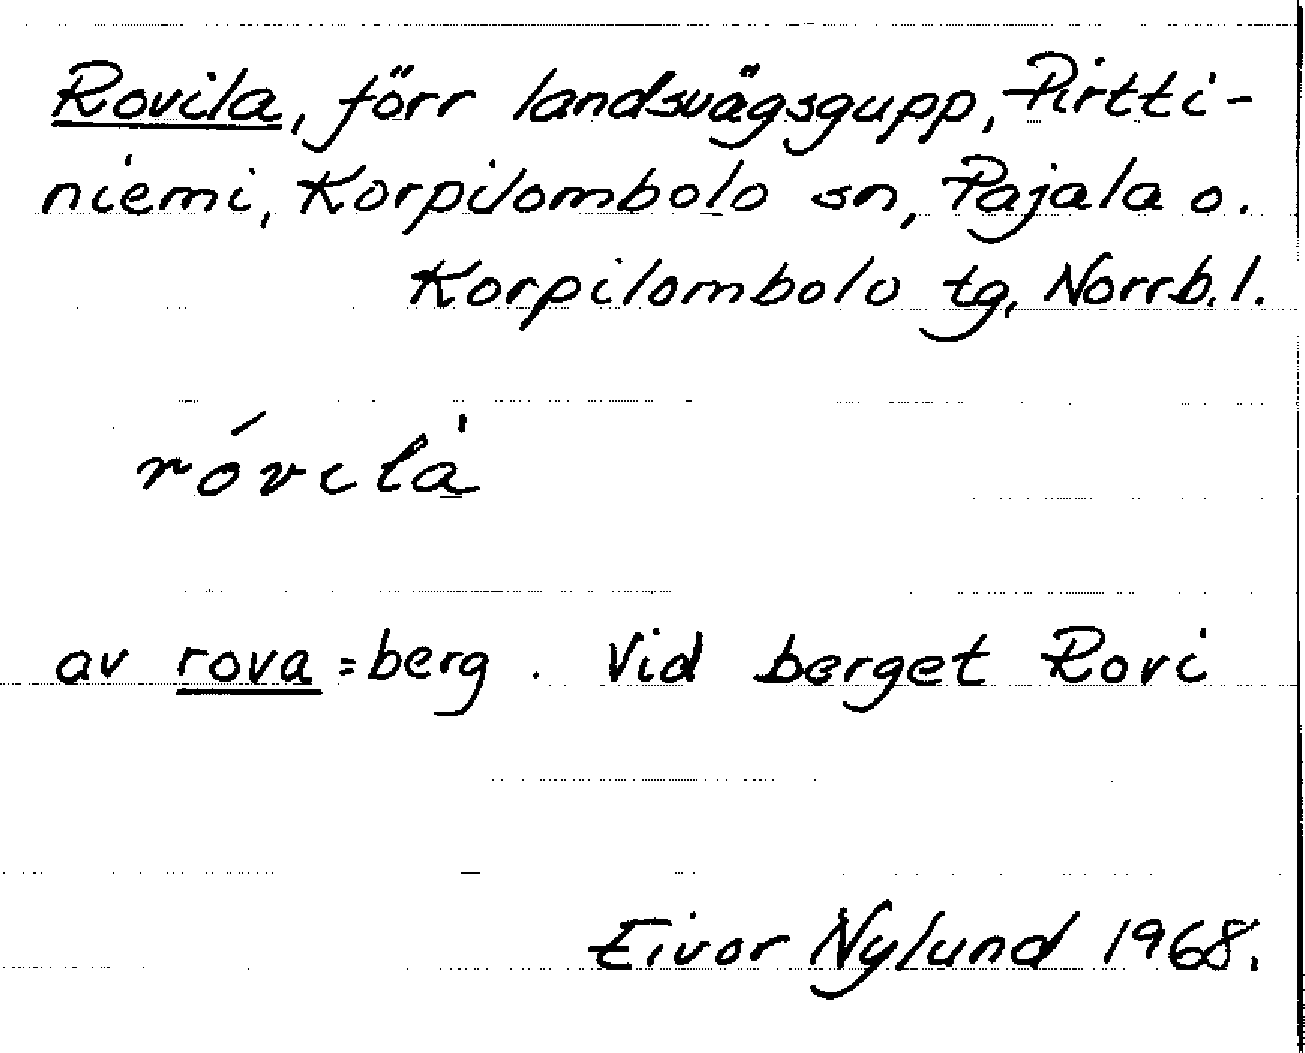 Rovila, förr landsvägsgupp, Pirtti-
niemi, Korpilombolo sn, Pajala o.
Korpilombolo tg, Norrb. l.
róvilà
av rova = berg. Vid berget Rovi
Eivor Nylund 1968.